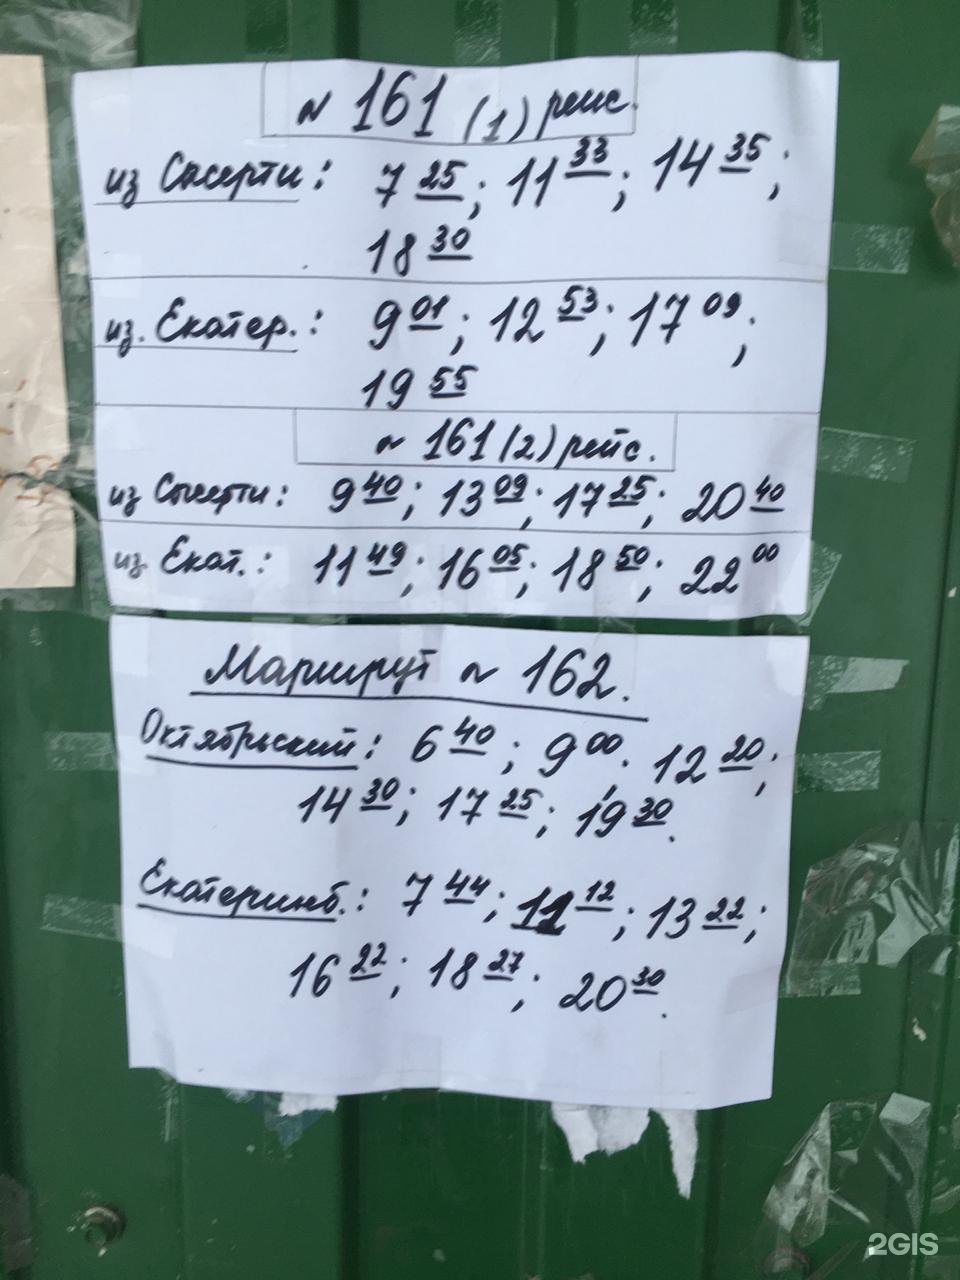 № 161 (1) рейс.
из Сысерти: 7 25; 11 33; 14 35;
18 30
из. Екатер.: 9 01; 12 53; 17 09;
19 55
№ 161 (2) рейс.
из Сысерти: 9 40; 13 09; 17 25; 20 40
из Екат.: 11 49; 16 05; 18 50; 22 00
Маршрут № 162.
Октябрьский: 6 40; 9 00; 12 20;
14 30; 17 25; 19 30.
Екатеринб.: 7 44; 11 12; 13 22;
16 22; 18 27; 20 30.
2GIS